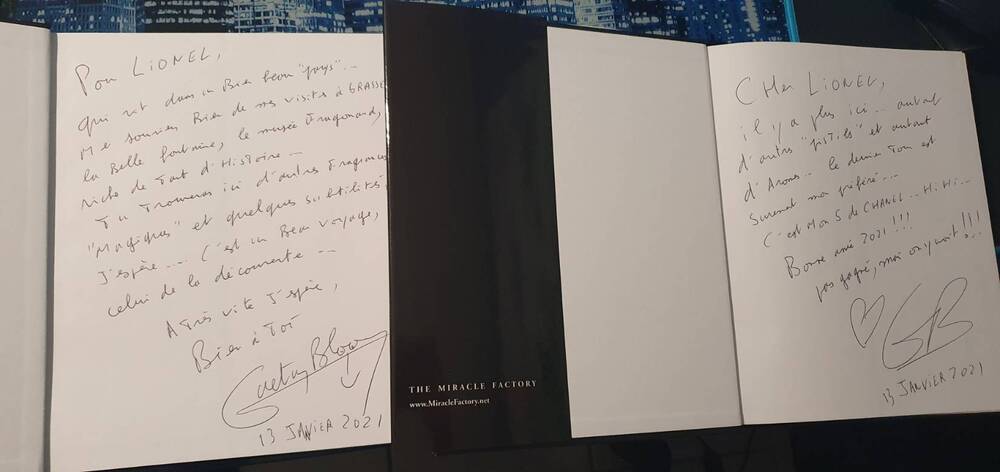 Pour LIONEL,
qui vit dans un Bien beau "pays" --
Me souviens Bien de mes visites à GRASSE
la Belle fontaine, le musée Fragonard,
riche de Tant d'Histoire --
Tu Trouveras ici d'autres Fragrances
"Magiques" et quelques subtilités,
J'espère --- C'est un Beau voyage,
celui de la découverte --
A Très vite J'espère,
Bien à Toi
Gaetan Bloom
13 JANVIER 2021
THE MIRACLE FACTORY
www.MiracleFactory.net
CHer LIONEL,
il y a plus ici -- autant
d'autres et autant
d'Aromes -- le dernier Tour est
Surement mon préféré ---
C'est Mon 5 de CHANEL -- Hi Hi --
Bonne année 2021 !!!
pas gagné, mais on y croit !!!
GB
13 JANVIER 2021